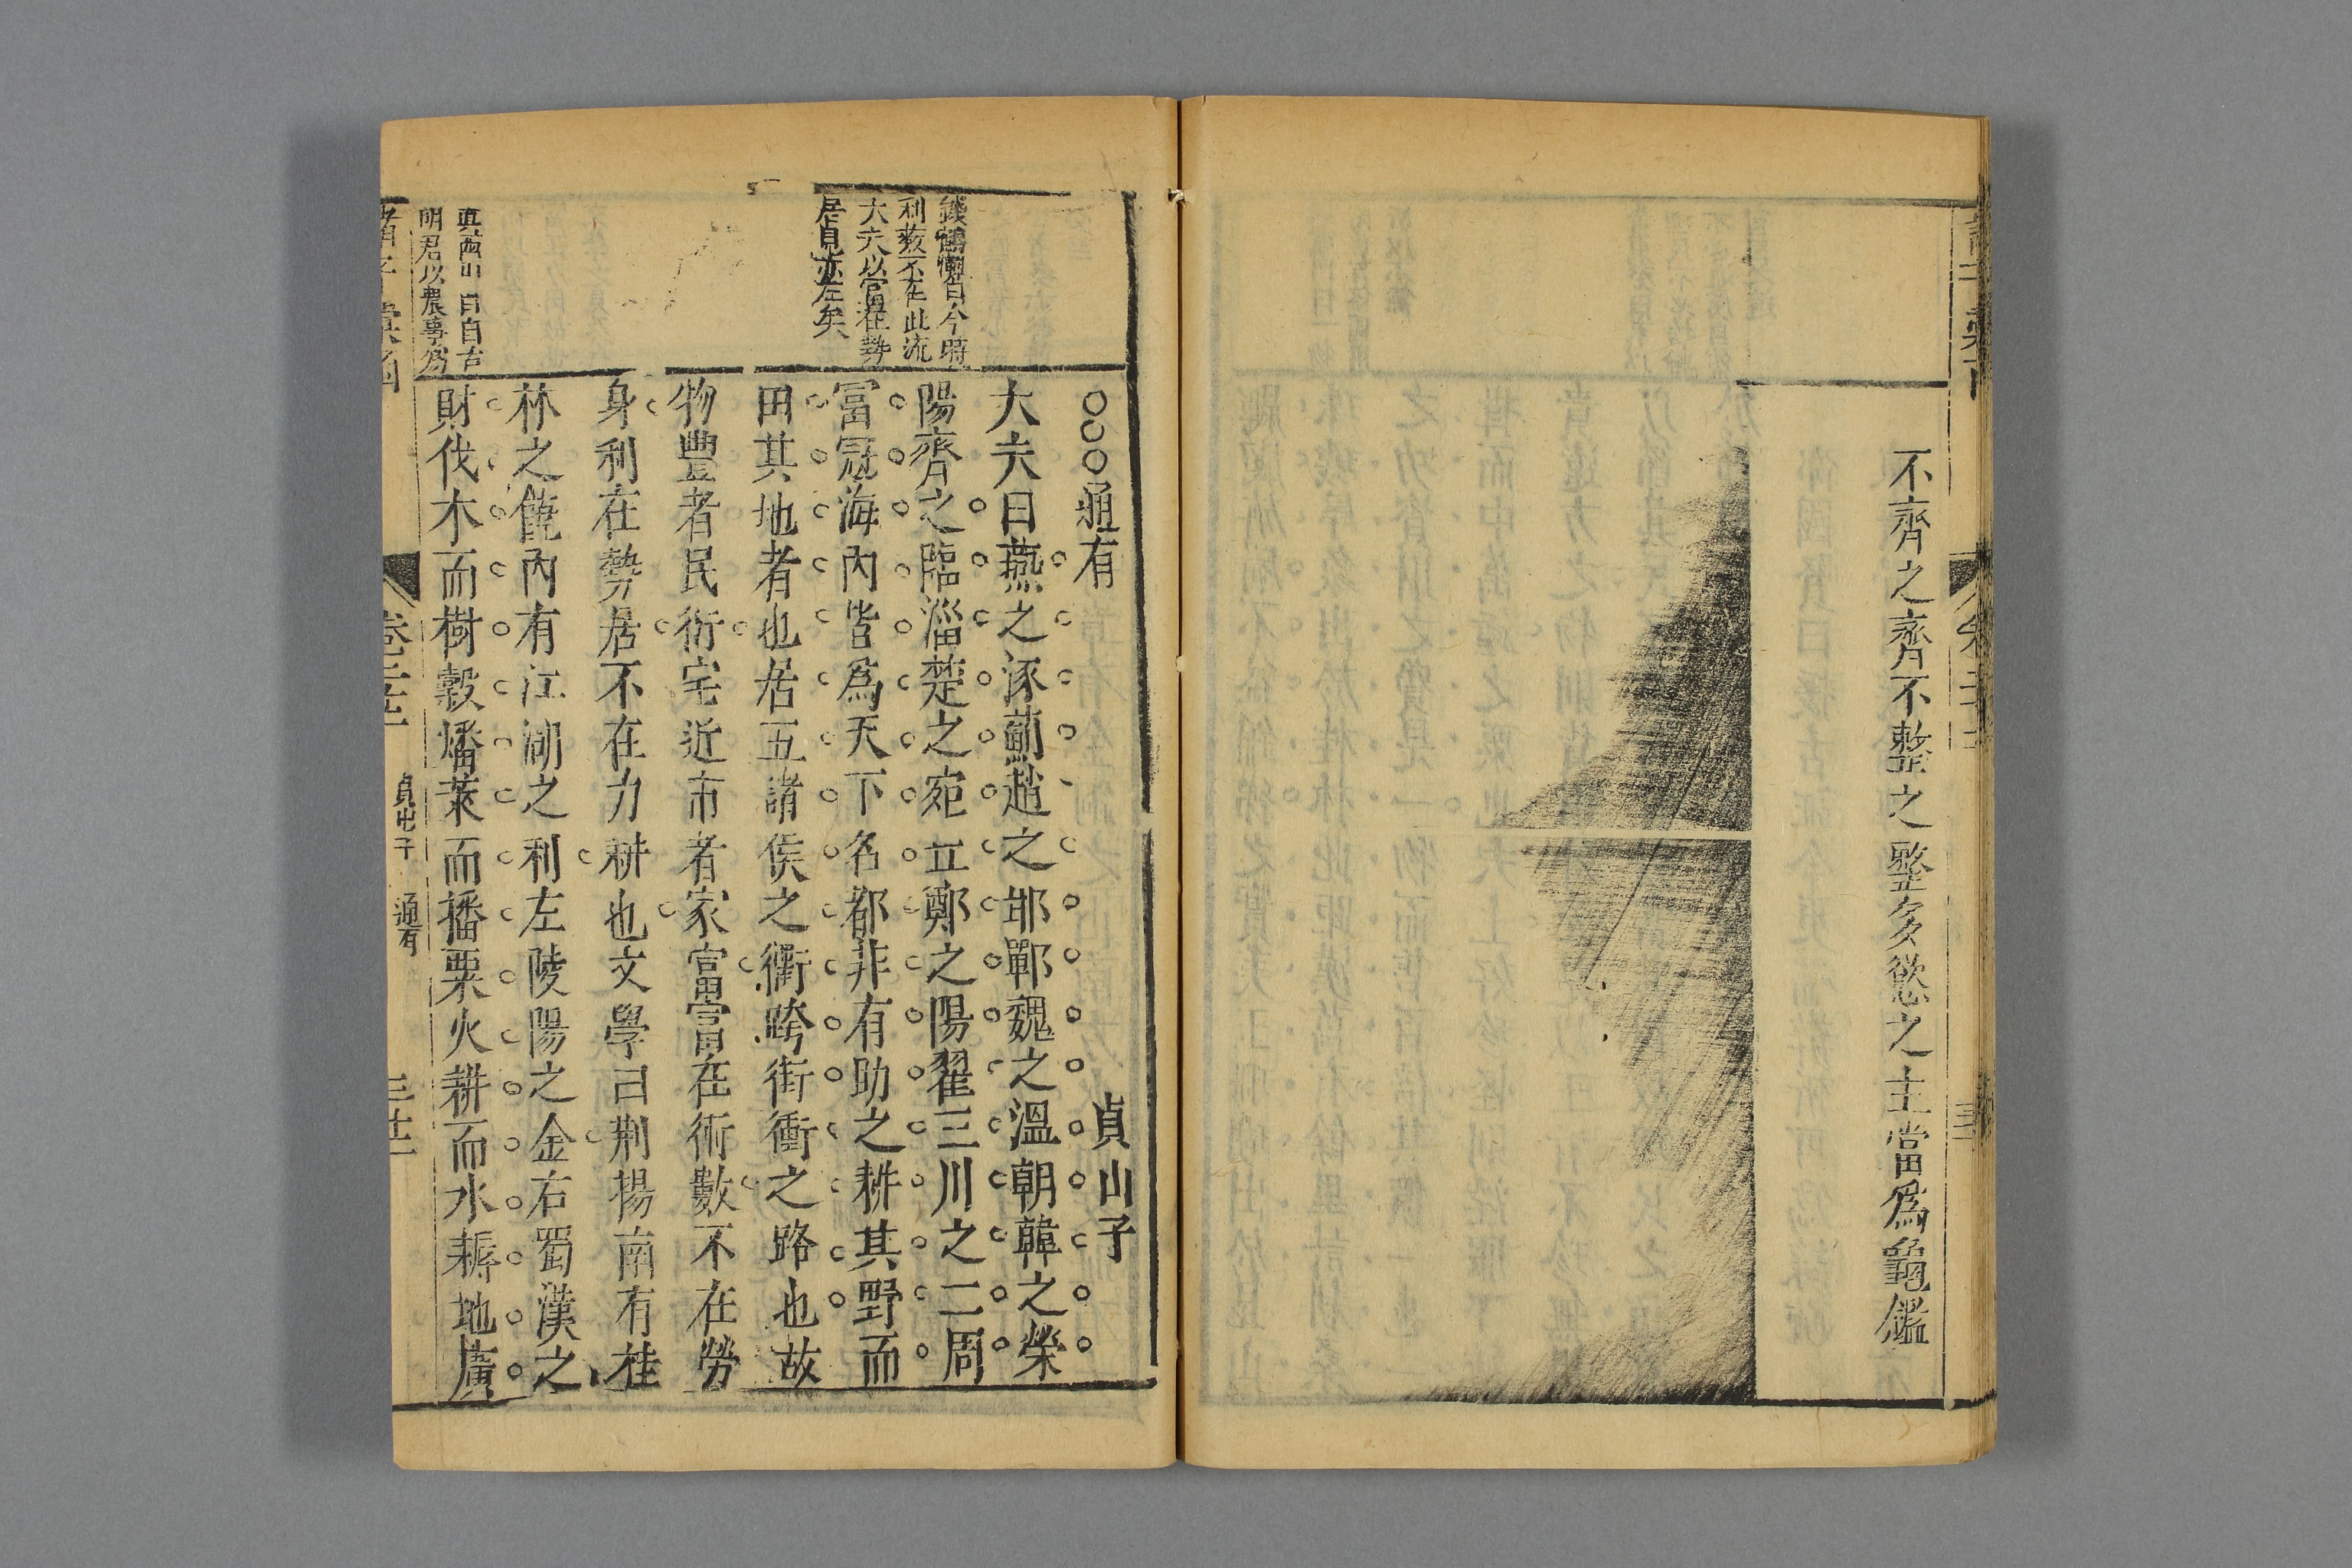 不齊之齊不整之整多慾之主當爲龜鑑
錢鶴灘曰今時
利薮不在此流
大夫以富在勢
居見亦左矣
○○○通有 貞山子
大夫曰燕之涿薊趙之邯鄲魏之溫朝韓之滎
陽齊之臨淄楚之宛丘鄭之陽翟三川之二周
富冠海內皆爲天下名都非有助之耕其野而
田其地者也居五諸侯之衢跨街衝之路也故
物豐者民衍宅近市者家富富在術數不在勞
身利在勢居不在力耕也文學曰荆揚南有桂
林之饒內有江湖之利左陵陽之金右蜀漢之
財伐木而樹穀燔萊而播粟火耕而水耨地廣
真西山曰自古
明君以農事爲
卷二十
貞山子 通有